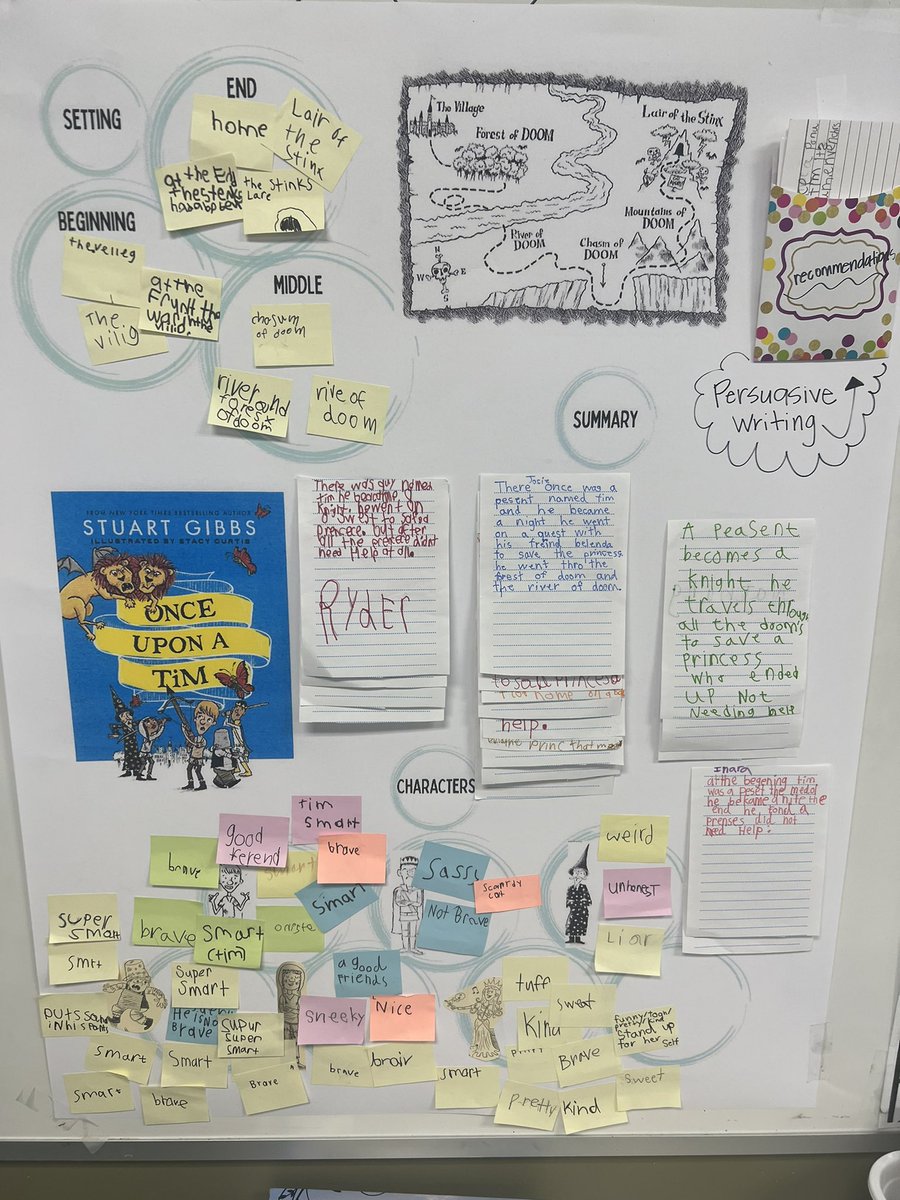 SETTING
END
home
Lair of
the
Stinx
at the End
the Stinks
Lare
BEGINNING
thevelleg
at the
The
vilig
MIDDLE
chasum
of doom
river
of doom
rive of
doom
The Village
Forest of DOOM
Lair of the Stinx
River of
DOOM
Chasm of
DOOM
Mountains of
DOOM
N
W
E
S
recommendations
Persuasive
Writing
SUMMARY
FROM NEW YORK TIMES BESTSELLING AUTHOR
STUART GIBBS
ILLUSTRATED BY STACY CURTIS
ONCE
UPON A
TiM
There was a guy named
tim he became a
Knight. he went on
a
Princess. but after
all the didnt
need Help at all.
RYdER
Josie
There once was a
pesent named tim
and he became
a night he went
on a quest with
his freind belenda
to save the princess
he went thro the
forest of doom and
the river of doom.
help.
A Peasent
becomes a
knight he
travels through
all the doom's
to save a
princess
who ended
up not
Needing help
Inara
at the begening tim
was a peset the medol
he bekame a nite the
end he fond a
prenses did not
need Help.
CHARACTERS
tim
smart
good
ferend
brave
brave
smart
Smart
brave
Smart
(tim)
Sassy
Scaredy
cat
Not Brave
weird
unhonest
Liar
super
smart
smrt
Super
smart
He is No
Brave
supur
super
smart
a good
friends
sneeky
Nice
tuff
sweat
Kind
funny/tough
pretty/kind
stand up
for her self
smart
Smart
Brave
brave
broiv
smart
Brave
sweet
smart
brave
pretty
kind